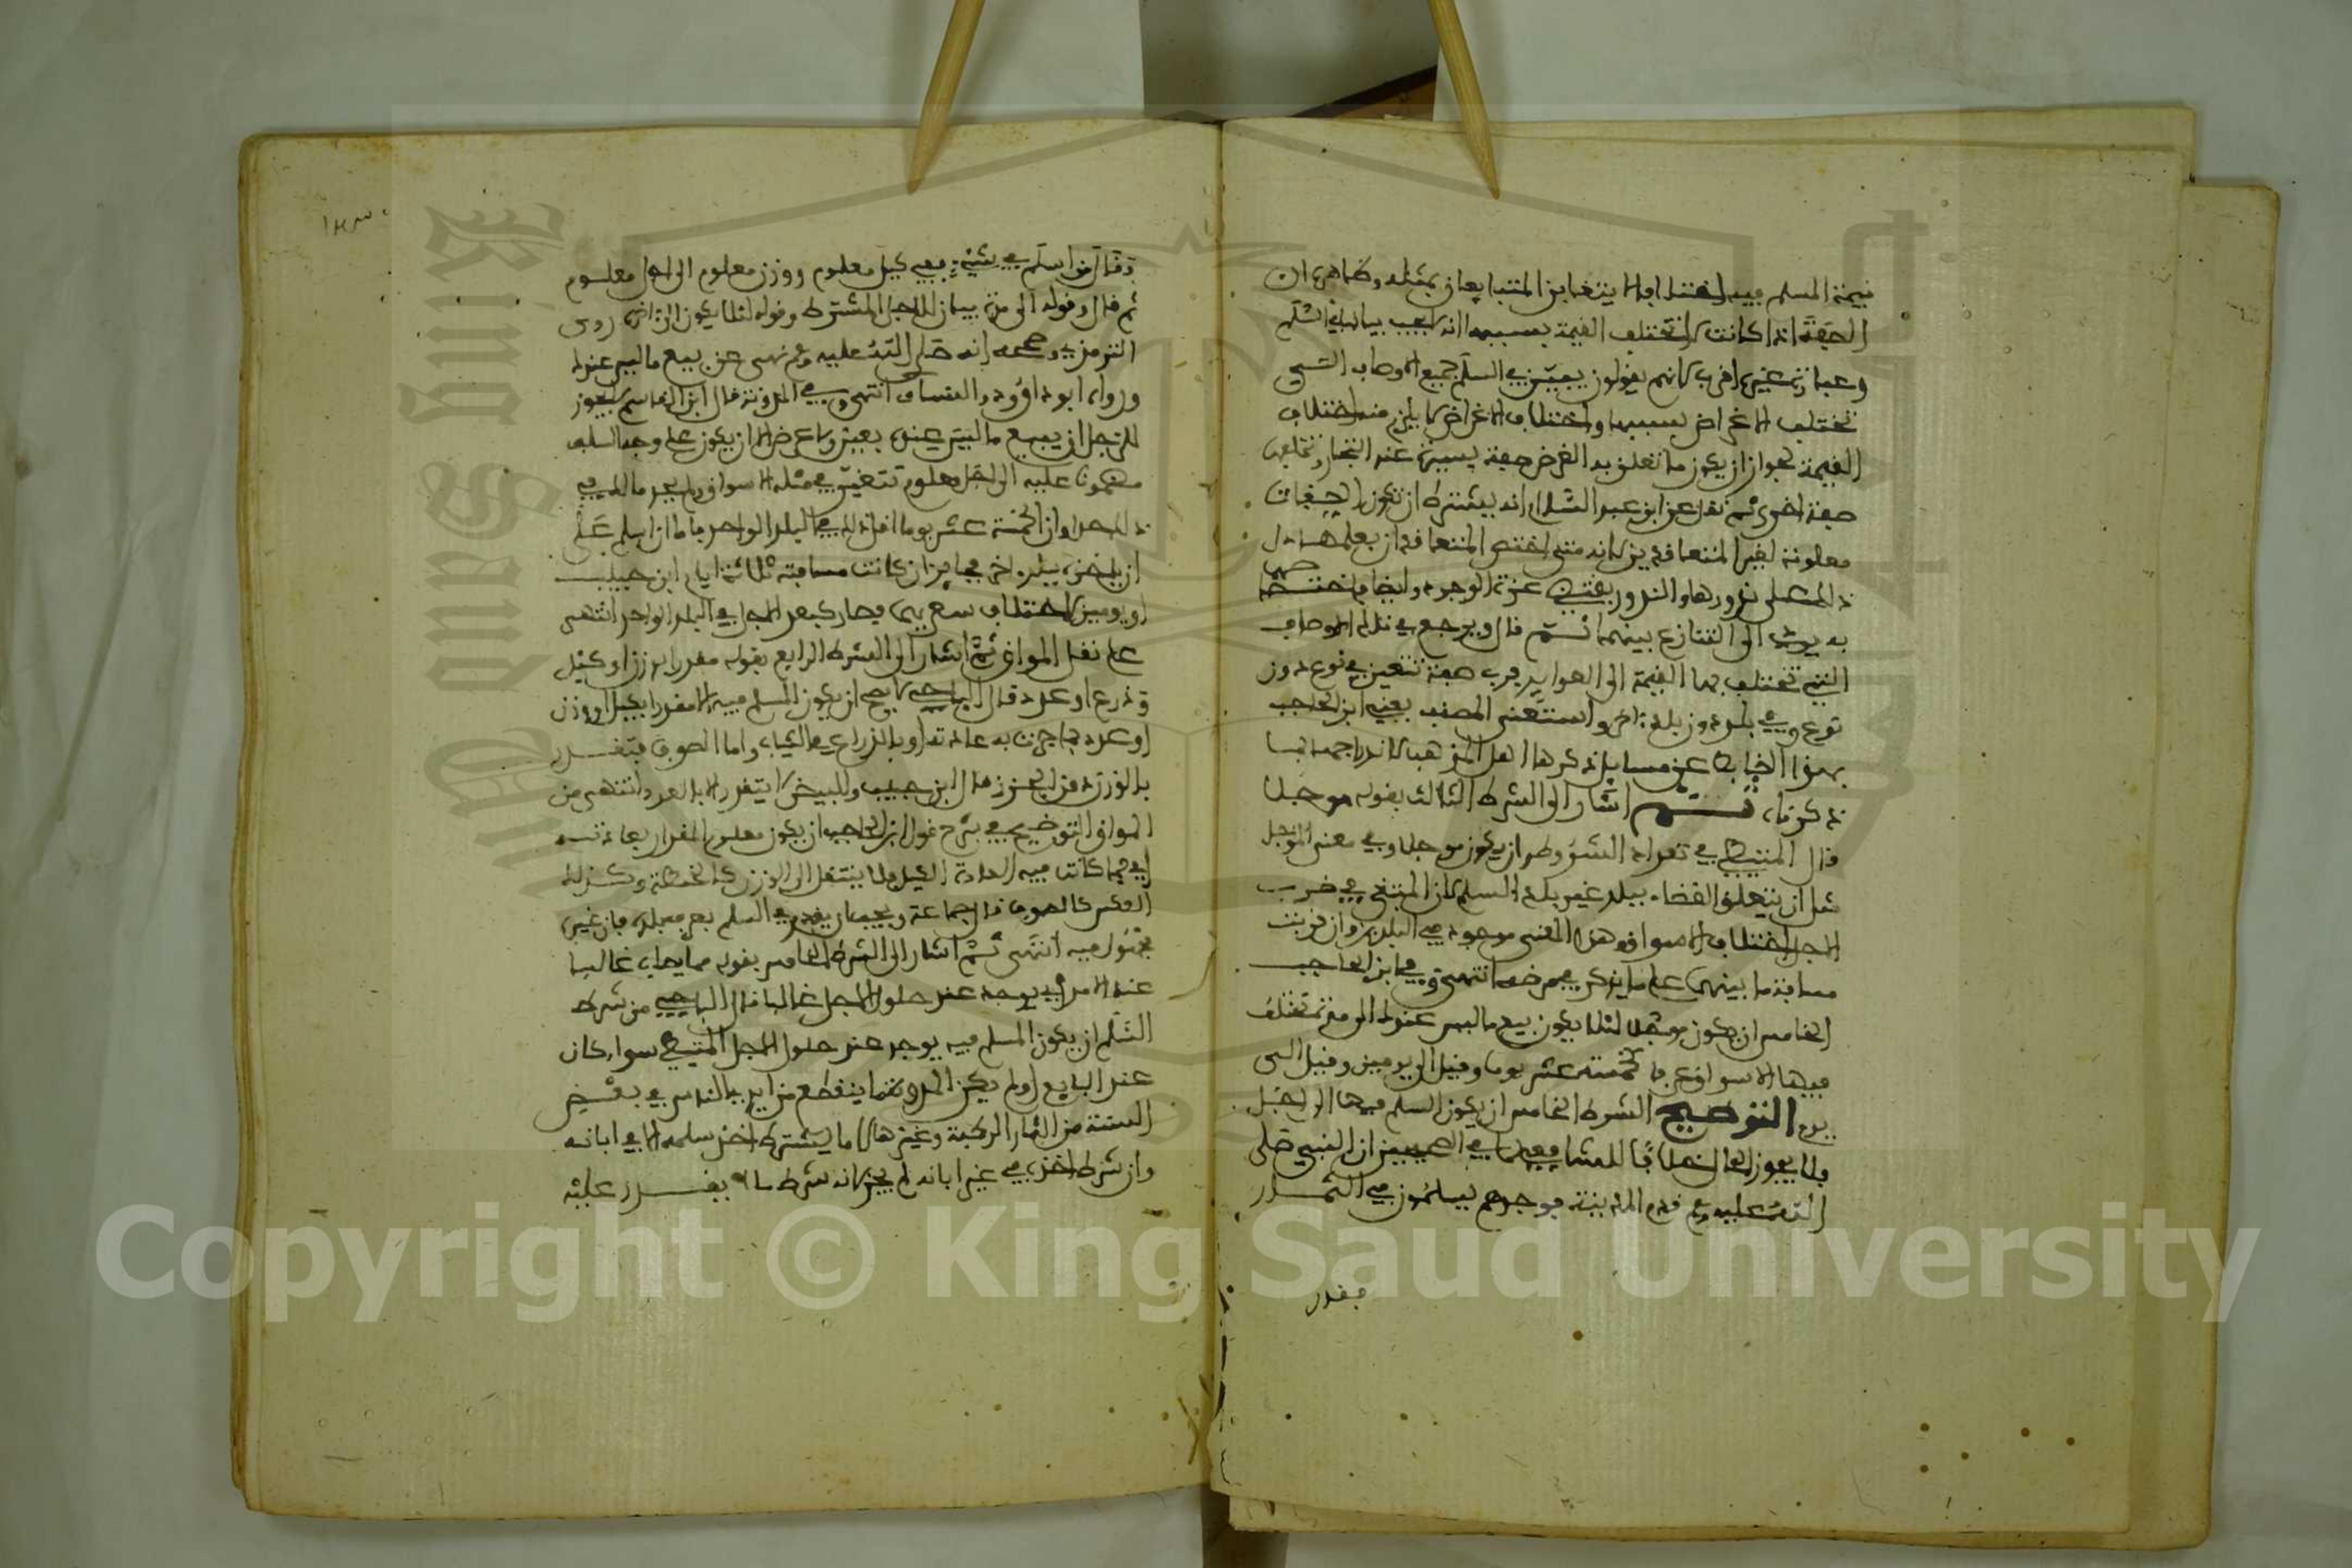 قيمة المسلم فيه اختلافا لا يتغابن المتبايعان بمثله وظاهره ان
الصفة اذا كانت لا تختلف القيمة بسببها انه لا يجب بيانها في السلم
وعبارة غيره اقرب لانهم يقولون يبين في السلم جميع الاوصاف التي
تختلف الاغراض بسببها واختلاف الاغراض لا يلزم منه اختلاف
القيمة لجواز ان يكون ما تعلق به الغرض صفة يسيرة عند التجار وتخلفها
صفة اخرى ثم نقل عن ابن عبد السلام انه يشترط ان تكون الصفات
معلومة لغير المتعاقدين لانه متى اختص المتعاقدان بعلمها دل
ذلك على ندورها والندور يقتضي عزة الوجود وايضا فاختصاصهما
به يودي الى التنازع بينهما ثم قال ويرجع في تلك الاوصاف
التي تختلف بها القيمة الى العوايد فرب صفة تتعين في نوع دون
نوع وفي بلد دون بلد اخر واستغنى المصنف يعني ابن الحاجب
بهذا الضابط عن مسايل ذكرها اهل المذهب لانه راجعة لما
ذكرناه ثم اشار الى الشرط الثالث بقوله موجلا
قال المتيطي في تعداد الشروط وان يكون موجلا وفي معنى الموجل
مثل ان يتعلق القضاء ببلد غير بلد السلم لان المبتغى في ضرب
الاجل اختلاف الاسواق وهذا المعنى موجود في البلدين وان قربت
مسافة ما بينهما على ما يذكر في موضعه انتهى وفي ابن الحاجب
الخامس ان يكون موجلا لئلا يكون بيع ما ليس عندك الى مدة تختلف
فيها الاسواق عرفا كخمسة عشر يوما وقيل الى يومين وقيل الى
يوم التوضيح الشرط الخامس ان يكون السلم فيها الى اجل
فلا يجوز الحال خلافا للشافعي لما في الصحيحين ان النبي صلى
الله عليه وسلم قدم المدينة فوجدهم يسلمون في الثمار
فقال
١٣٠
فقال من اسلم في شيء ففي كيل معلوم ووزن معلوم الى اجل معلوم
ثم قال وقوله الى مدة بيان للاجل المشترط وقوله لئلا يكون الى اخره روى
الترمذي وصححه انه صلى الله عليه وسلم نهى عن بيع ما ليس عندك
ورواه ابو داوود والنساي انتهى وفي المدونة قال ابن القاسم لا يجوز
للرجل ان يبيع ما ليس عنده بعين ولا عرض الا ان يكون على وجه السلف
مضمونا عليه الى اجل معلوم تتغير في مثله الاسواق ولم يحد مالك في
ذلك حدا وارى الخمسة عشر يوما اقل ذلك في البلد الواحد فاما ان اسلم على
ان ياخذه ببلد اخر فجايز ان كانت مسافته ثلاثة ايام ابن حبيب
او يومين لاختلاف سعريهما فصار كبعد الاجل في البلد الواحد انتهى
على نقل المواق ثم اشار الى الشرط الرابع بقوله مقدرا بوزن او كيل
وذرع او عدد قال الباجي لا يصح ان يكون المسلم فيه الا مقدرا بكيل او وزن
او عدد مما جرت به عادته او بالذراع في الثياب واما الصوف فيتقدر
بالوزن دون الجزز قال ابن حبيب والبيض لا يتقدر الا بالعدد انتهى من
المواق التوضيح في شرح قول ابن الحاجب ان يكون معلوم المقدار بعادته
اي فما كانت فيه العادة الكيل فلا ينتقل الى الوزن كالحنطة وكذلك
العكس كالصوف قال جماعة ويجب ان يقدر في السلم بعرف بلده فان غيره
مجهول فيه انتهى ثم اشار الى الشرط الخامس بقوله مما يصاب غالبا
عنده الامد اي يوجد عند حلول الاجل غالبا قال الباجي من شرط
السلم ان يكون المسلم فيه يوجد عند حلول الاجل المتيطي سواء كان
عند البايع او لم يكن المدونة ما ينقطع من ايدي الناس في بعض
السنة من الثمار الرطبة وغيرها لا ما يشترط اخذ سلمه الا في ابانه
وان شرط اخذه في غير ابانه لم يجز لانه شرط ما لا يقدر عليه